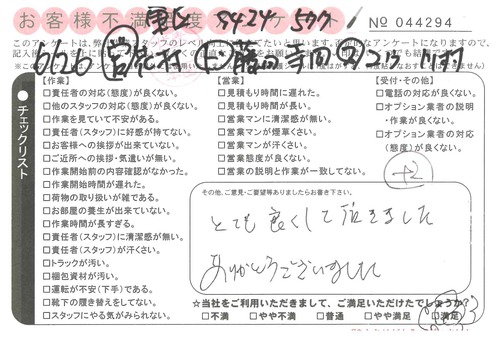 お客様不満足度アンケート
No 044294
【作業】
□責任者の対応(態度)が良くない。
□他のスタッフの対応(態度)が良くない。
□作業を見ていて不安がある。
□責任者(スタッフ)に好感が持てない。
□お客様への挨拶が出来ていない。
□ご近所への挨拶・気遣いが無い。
□作業開始前の内容確認がなかった。
□作業開始時間が遅れた。
□荷物の取り扱いが雑である。
□お部屋の養生が出来ていない。
□作業時間が長すぎる。
□責任者(スタッフ)に清潔感が無い。
□責任者(スタッフ)が汗くさい。
□トラックが汚い。
□梱包資材が汚い。
□運転が不安(下手)である。
□靴下の履き替えをしてない。
□スタッフにやる気がみられない。
【営業】
□見積もり時間に遅れた。
□見積もり時間が長い。
□営業マンに清潔感が無い。
□営業マンが煙草くさい。
□営業マンが汗くさい。
□営業態度が良くない。
□営業の説明と作業が一致してない。
【受付・その他】
□電話の対応が良くない。
□オプション業者の説明・作業が良くない。
□オプション業者の対応(態度)が良くない。
チェックリスト
その他、ご意見・ご要望等ありましたらお書き下さい。
とても良くして頂きました
ありがとうございました
☆当社をご利用いただきまして、ご満足いただけたでしょうか?
□不満 □やや不満 □普通 □やや満足 □満足